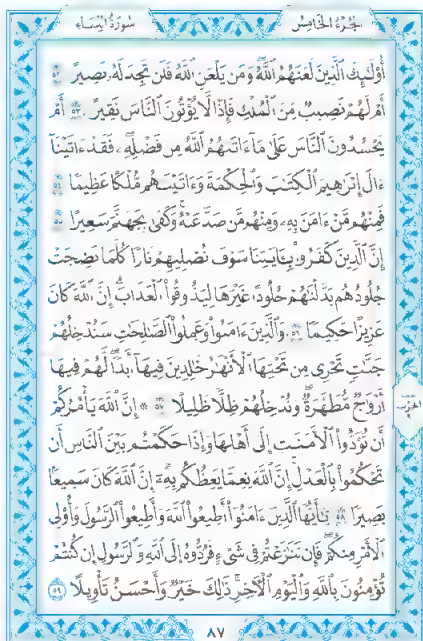 الجزء الخامس
سورة النساء
أُوْلَٰٓئِكَ ٱلَّذِينَ لَعَنَهُمُ ٱللَّهُ وَمَن يَلْعَنِ ٱللَّهُ فَلَن تَجِدَ لَهُۥ نَصِيرًا ٥٢
أَمْ لَهُمْ نَصِيبٌ مِّنَ ٱلْمُلْكِ فَإِذًا لَّا يُؤْتُونَ ٱلنَّاسَ نَقِيرًا ٥٣ أَمْ
يَحْسُدُونَ ٱلنَّاسَ عَلَىٰ مَآ ءَاتَىٰهُمُ ٱللَّهُ مِن فَضْلِهِۦ فَقَدْ ءَاتَيْنَآ
ءَالَ إِبْرَٰهِيمَ ٱلْكِتَٰبَ وَٱلْحِكْمَةَ وَءَاتَيْنَٰهُم مُّلْكًا عَظِيمًا ٥٤
فَمِنْهُم مَّنْ ءَامَنَ بِهِۦ وَمِنْهُم مَّن صَدَّ عَنْهُ وَكَفَىٰ بِجَهَنَّمَ سَعِيرًا ٥٥
إِنَّ ٱلَّذِينَ كَفَرُوا۟ بِـَٔايَٰتِنَا سَوْفَ نُصْلِيهِمْ نَارًا كُلَّمَا نَضِجَتْ
جُلُودُهُم بَدَّلْنَٰهُمْ جُلُودًا غَيْرَهَا لِيَذُوقُوا۟ ٱلْعَذَابَ إِنَّ ٱللَّهَ كَانَ
عَزِيزًا حَكِيمًا ٥٦ وَٱلَّذِينَ ءَامَنُوا۟ وَعَمِلُوا۟ ٱلصَّٰلِحَٰتِ سَنُدْخِلُهُمْ
جَنَّٰتٍ تَجْرِى مِن تَحْتِهَا ٱلْأَنْهَٰرُ خَٰلِدِينَ فِيهَآ أَبَدًا لَّهُمْ فِيهَآ
أَزْوَٰجٌ مُّطَهَّرَةٌ وَنُدْخِلُهُمْ ظِلًّا ظَلِيلًا ٥٧ ۞ إِنَّ ٱللَّهَ يَأْمُرُكُمْ
أَن تُؤَدُّوا۟ ٱلْأَمَٰنَٰتِ إِلَىٰٓ أَهْلِهَا وَإِذَا حَكَمْتُم بَيْنَ ٱلنَّاسِ أَن
تَحْكُمُوا۟ بِٱلْعَدْلِ إِنَّ ٱللَّهَ نِعِمَّا يَعِظُكُم بِهِۦٓ إِنَّ ٱللَّهَ كَانَ سَمِيعًۢا
بَصِيرًا ٥٨ يَٰٓأَيُّهَا ٱلَّذِينَ ءَامَنُوٓا۟ أَطِيعُوا۟ ٱللَّهَ وَأَطِيعُوا۟ ٱلرَّسُولَ وَأُو۟لِى
ٱلْأَمْرِ مِنكُمْ فَإِن تَنَٰزَعْتُمْ فِى شَىْءٍ فَرُدُّوهُ إِلَى ٱللَّهِ وَٱلرَّسُولِ إِن كُنتُمْ
تُؤْمِنُونَ بِٱللَّهِ وَٱلْيَوْمِ ٱلْـَٔاخِرِ ذَٰلِكَ خَيْرٌ وَأَحْسَنُ تَأْوِيلًا ٥٩
الحزب
٨٧